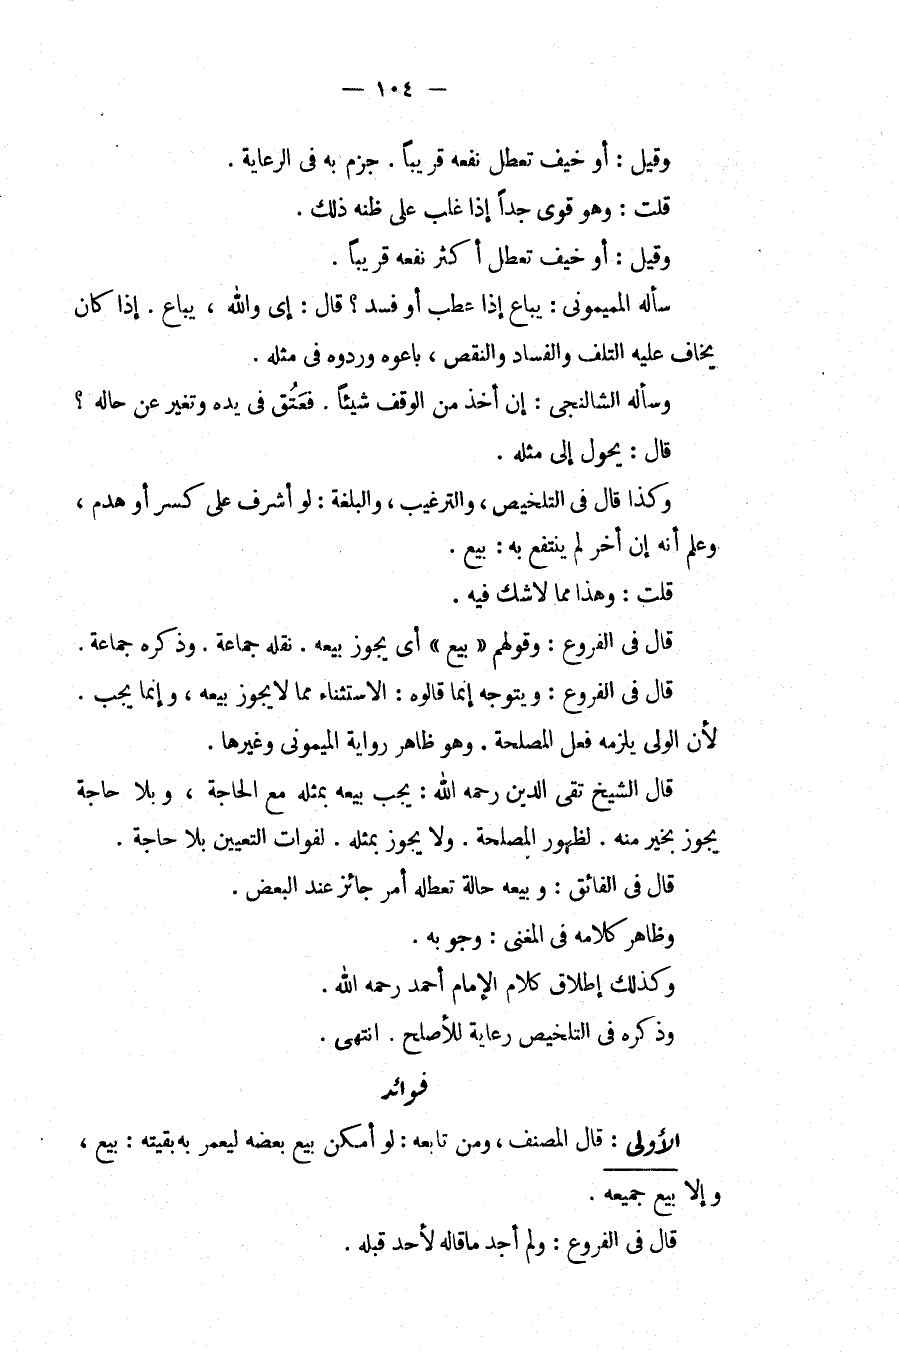 — ١٠٤ —
وقيل : أو خيف تعطل نفعه قريباً . جزم به فى الرعاية .
قلت : وهو قوى جداً إذا غلب على ظنه ذلك .
وقيل : أو خيف تعطل أكثر نفعه قريباً .
سأله الميمونى : يباع إذا عطب أو فسد ؟ قال : إى والله ، يباع . إذا كان
يخاف عليه التلف والفساد والنقص ، باعوه وردوه فى مثله .
وسأله الشالنجى : إن أخذ من الوقف شيئاً . فعَتُق فى يده وتغير عن حاله ؟
قال : يحول إلى مثله .
وكذا قال فى التلخيص ، والترغيب ، والبلغة : لو أشرف على كسر أو هدم ،
وعلم أنه إن أخر لم ينتفع به : بيع .
قلت : وهذا مما لاشك فيه .
قال فى الفروع : وقولهم « بيع » أى يجوز بيعه . نقله جماعة . وذكره جماعة .
قال فى الفروع : ويتوجه إنما قالوه : الاستثناء مما لايجوز بيعه ، وإنما يجب .
لأن الولى يلزمه فعل المصلحة . وهو ظاهر رواية الميمونى وغيرها .
قال الشيخ تقى الدين رحمه الله : يجب بيعه بمثله مع الحاجة ، وبلا حاجة
يجوز بخير منه . لظهور المصلحة . ولا يجوز بمثله . لفوات التعيين بلا حاجة .
قال فى الفائق : وبيعه حالة تعطله أمر جائز عند البعض .
وظاهر كلامه فى المغنى : وجوبه .
وكذلك إطلاق كلام الإمام أحمد رحمه الله .
وذكره فى التلخيص رعاية للأصلح . انتهى .
فوائد
الأولى : قال المصنف ، ومن تابعه : لو أمكن بيع بعضه ليعمر به بقيته : بيع ،
وإلا بيع جميعه .
قال فى الفروع : ولم أجد ماقاله لأحد قبله .